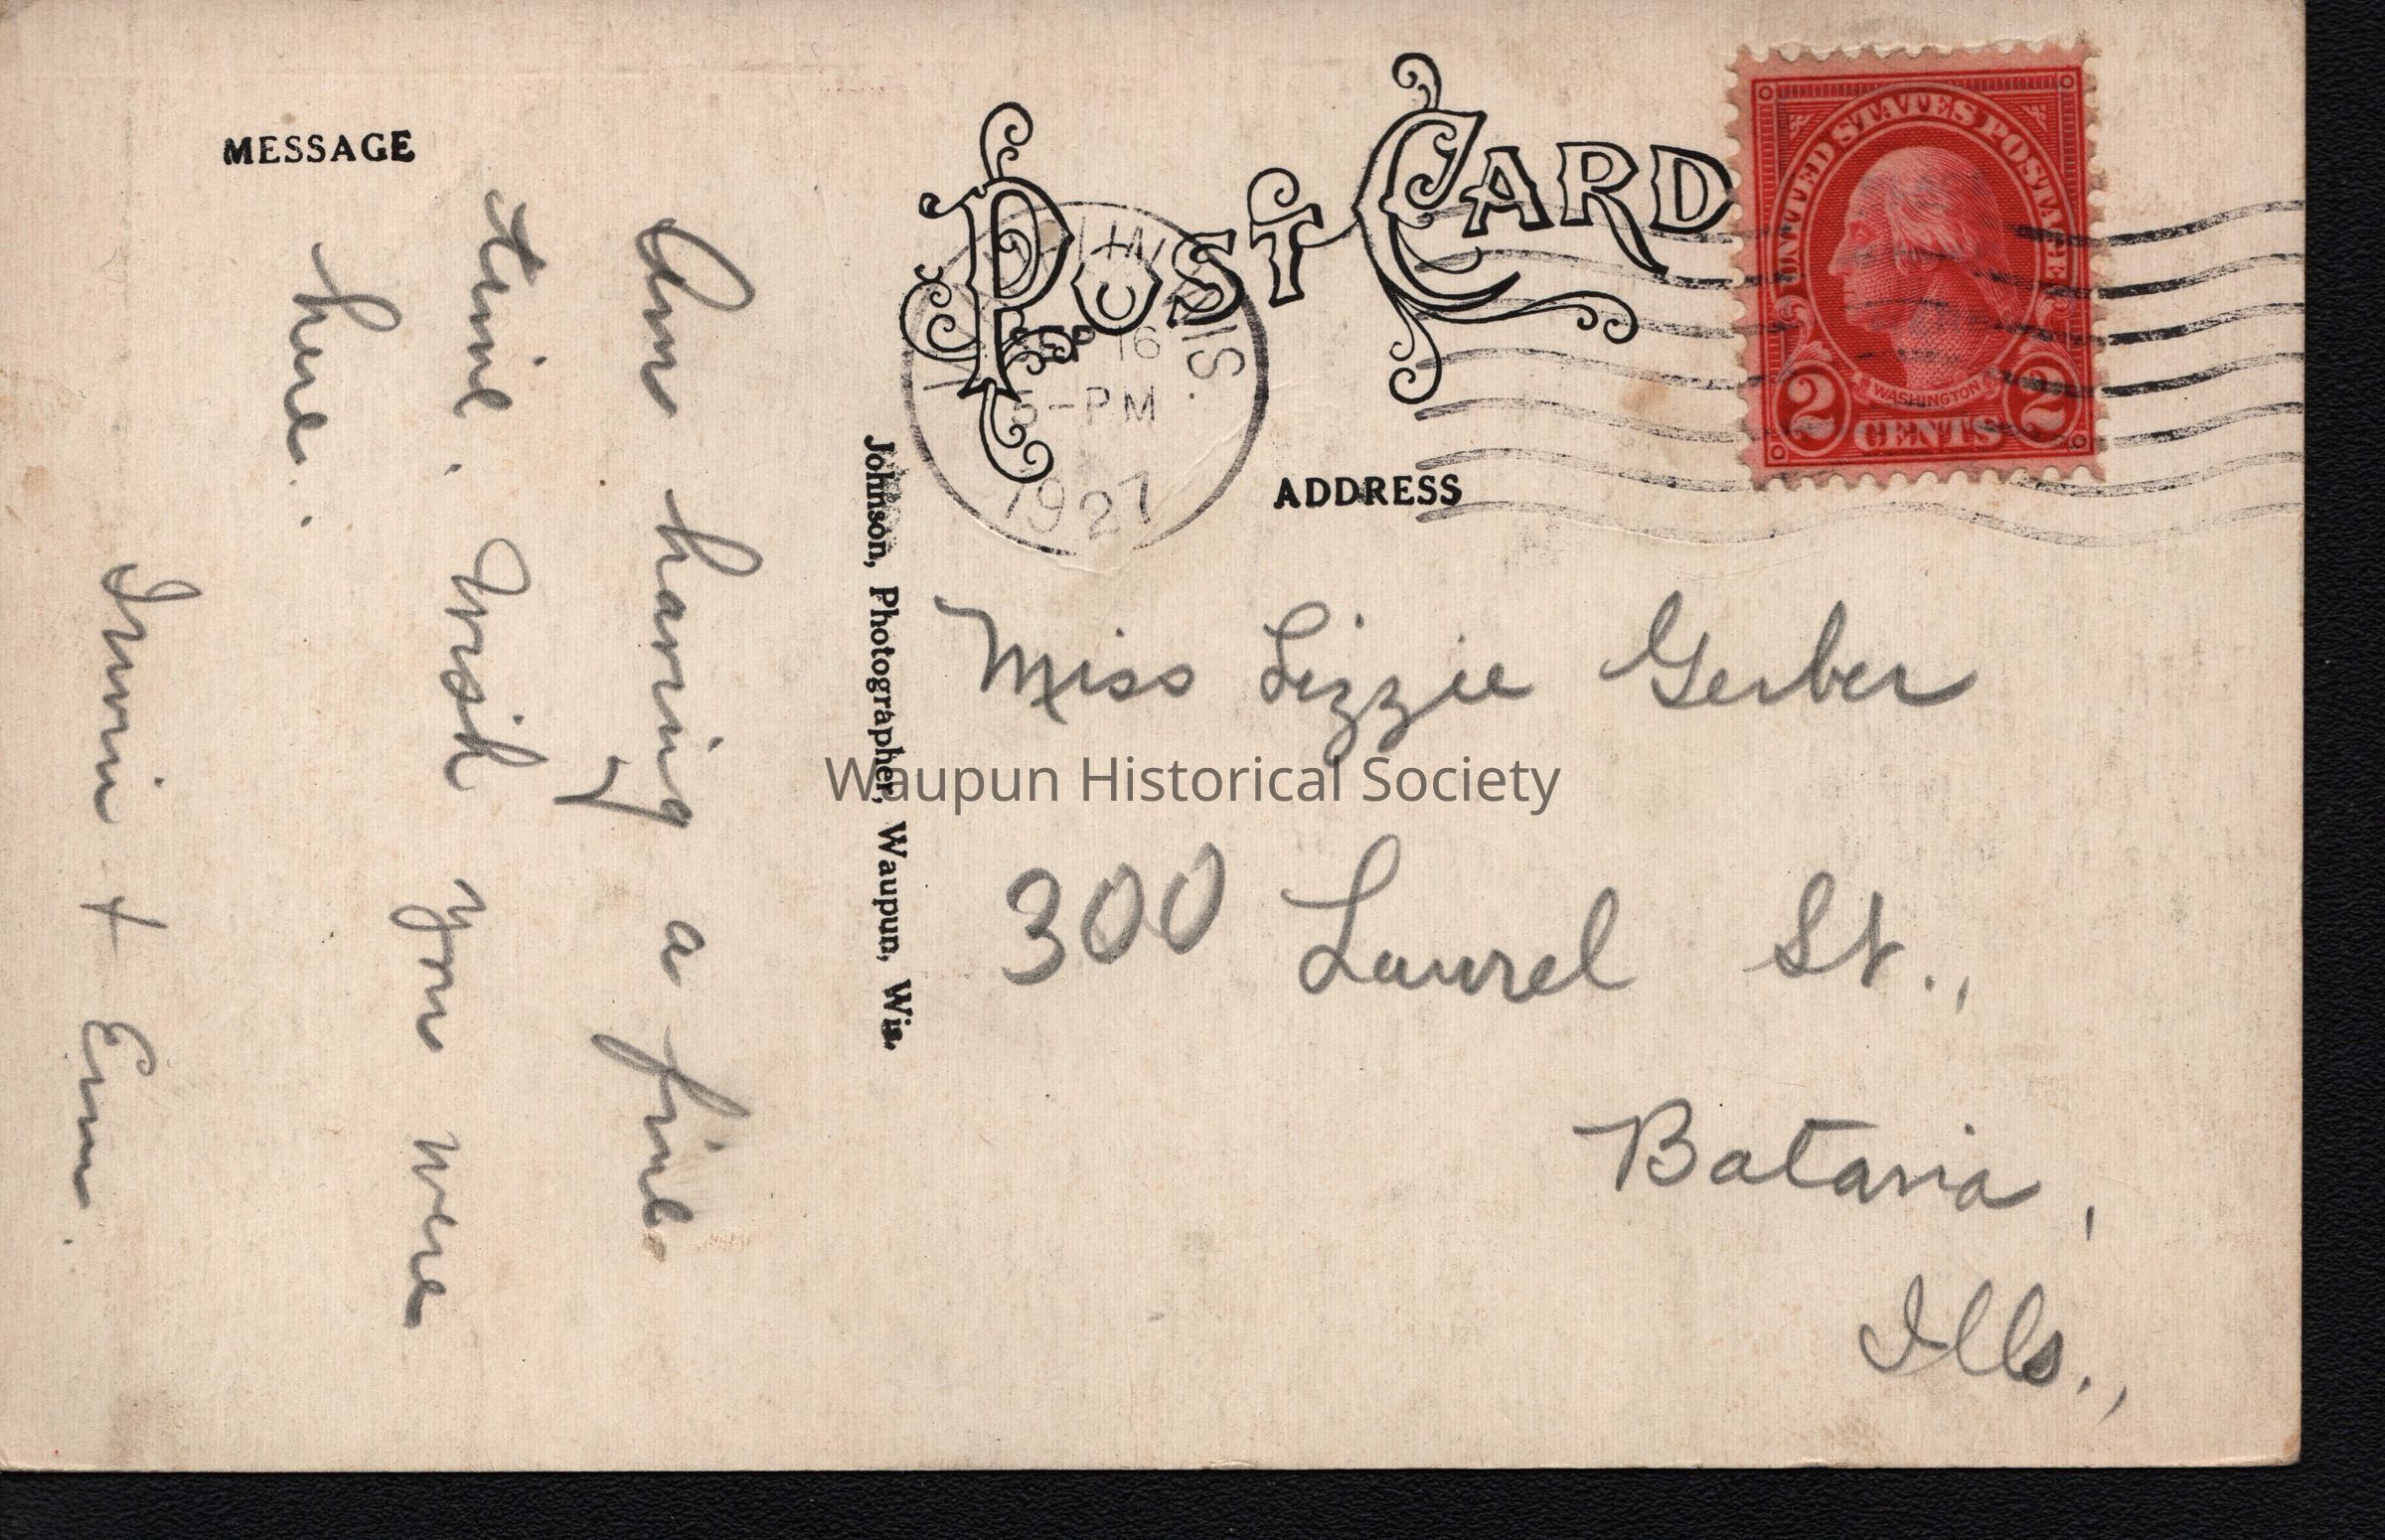 MESSAGE
Am having a fine
time. Wish you were
here.
Irwin + Erna.
Johnson, Photographer, Waupun, Wis.
POST CARD
WIS.
SEP 16
5-PM
1927
UNITED STATES POSTAGE
WASHINGTON
2 CENTS 2
ADDRESS
Miss Lizzie Gerber
Waupun Historical Society
300 Laurel St.,
Batavia,
Ills.,